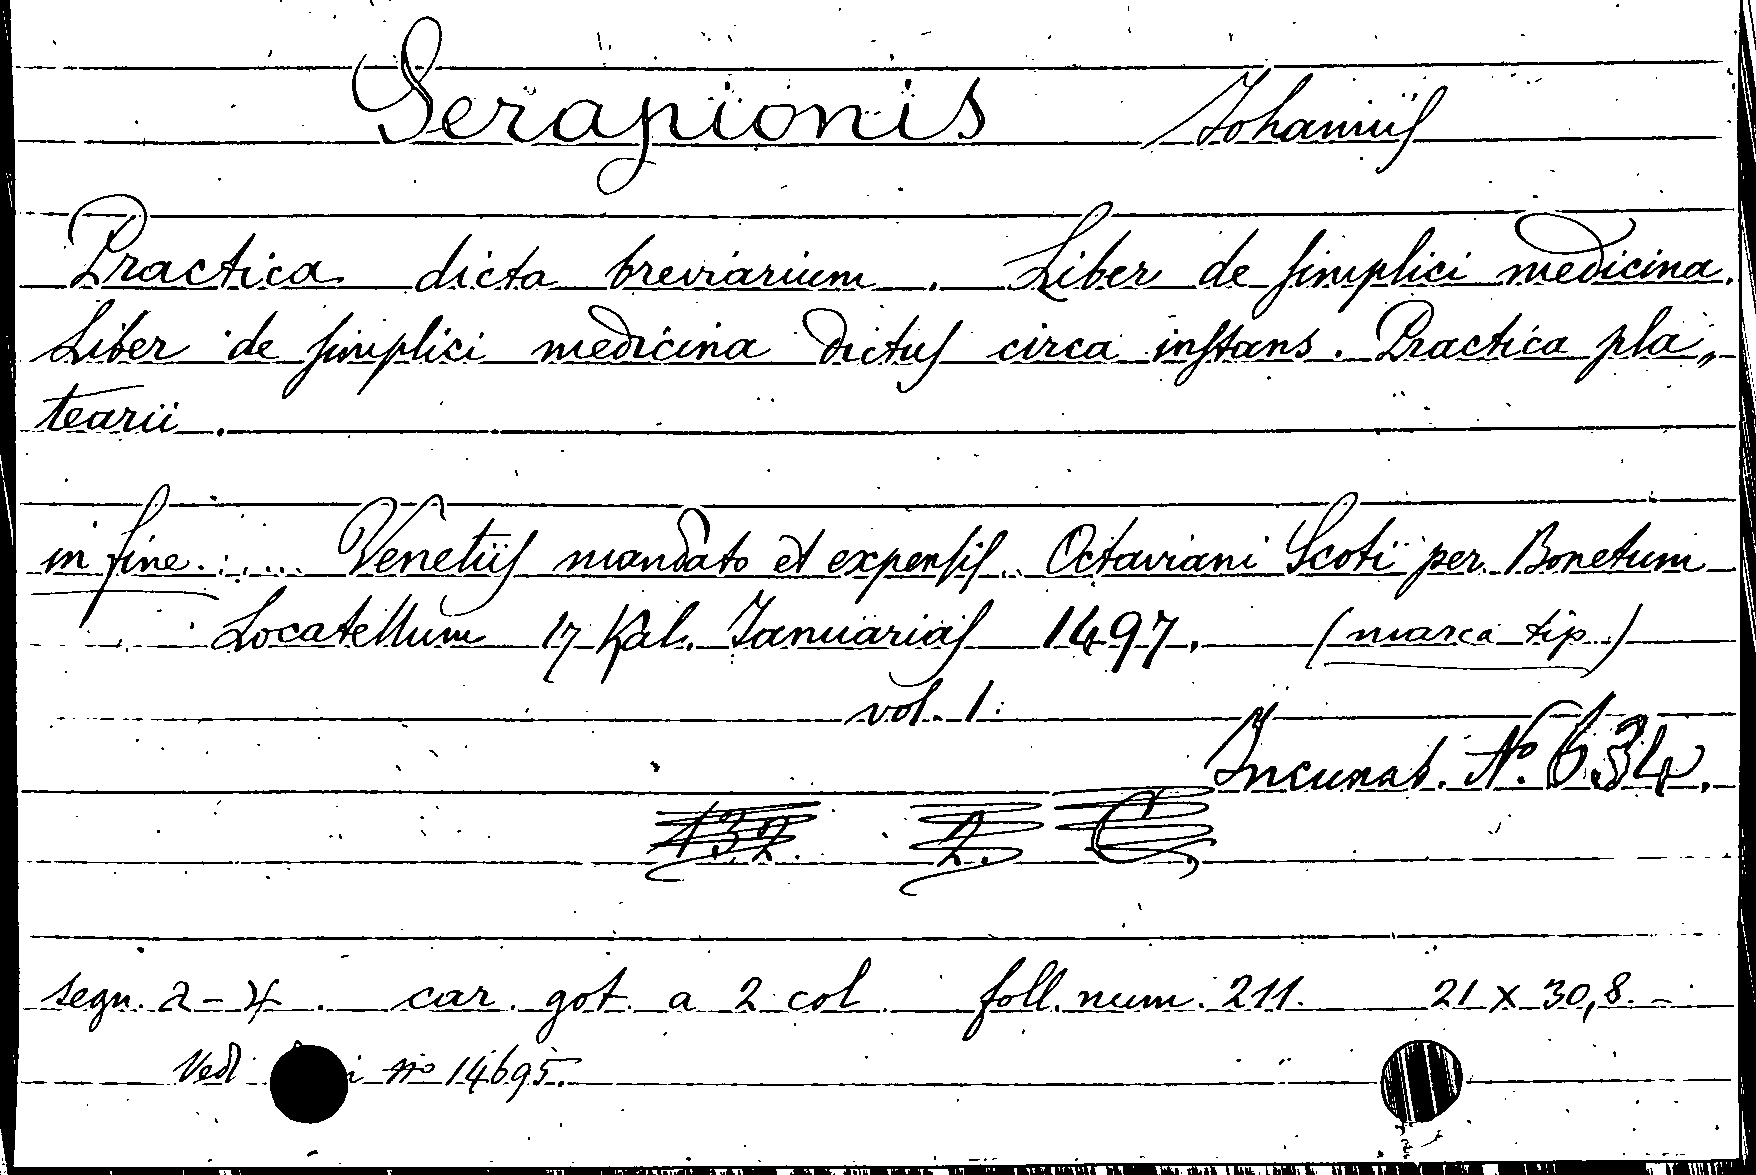 Serapionis Johannis
Practica dicta breviarium. Liber de simplici medicina.
Liber de simplici medicina dictus circa instans. Practica pla„
tearii.
in fine:.... Venetiis mandato et expensis Octaviani Scoti per Bonetum
Locatellum 17 Kal. Januarias 1497. (marca tip.)
vol. 1.
Incunab. No. 634.
132. 2. C.
segn. a-4. car. got. a 2 col. foll. num. 211. 21 x 30,8.-
Ved no 14695.